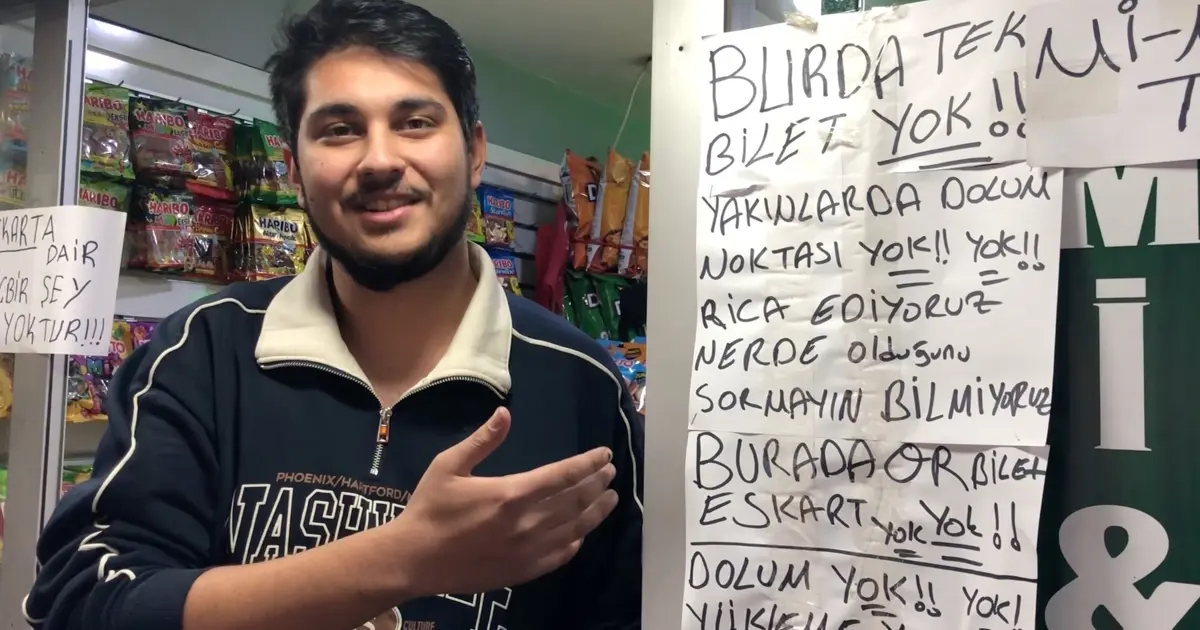 BURDA TEK
BİLET YOK!!
YAKINLARDA DOLUM
NOKTASI YOK!! YOK!!
RİCA EDİYORUZ
NERDE OLDUĞUNU
SORMAYIN BİLMİYORUZ
BURADA QR BİLET
ESKART YOK YOK!!
DOLUM YOK!! YOK!
YÜKLEME
Mİ-
T
KARTA
DAİR
YOKTUR!!!
ŞEY
M
İ
&
PHOENIX/HARTFORD/
NASH
CULTURE
HARIBO
HARIBO
HARIBO
HARIBO
HARIBO
HARIBO